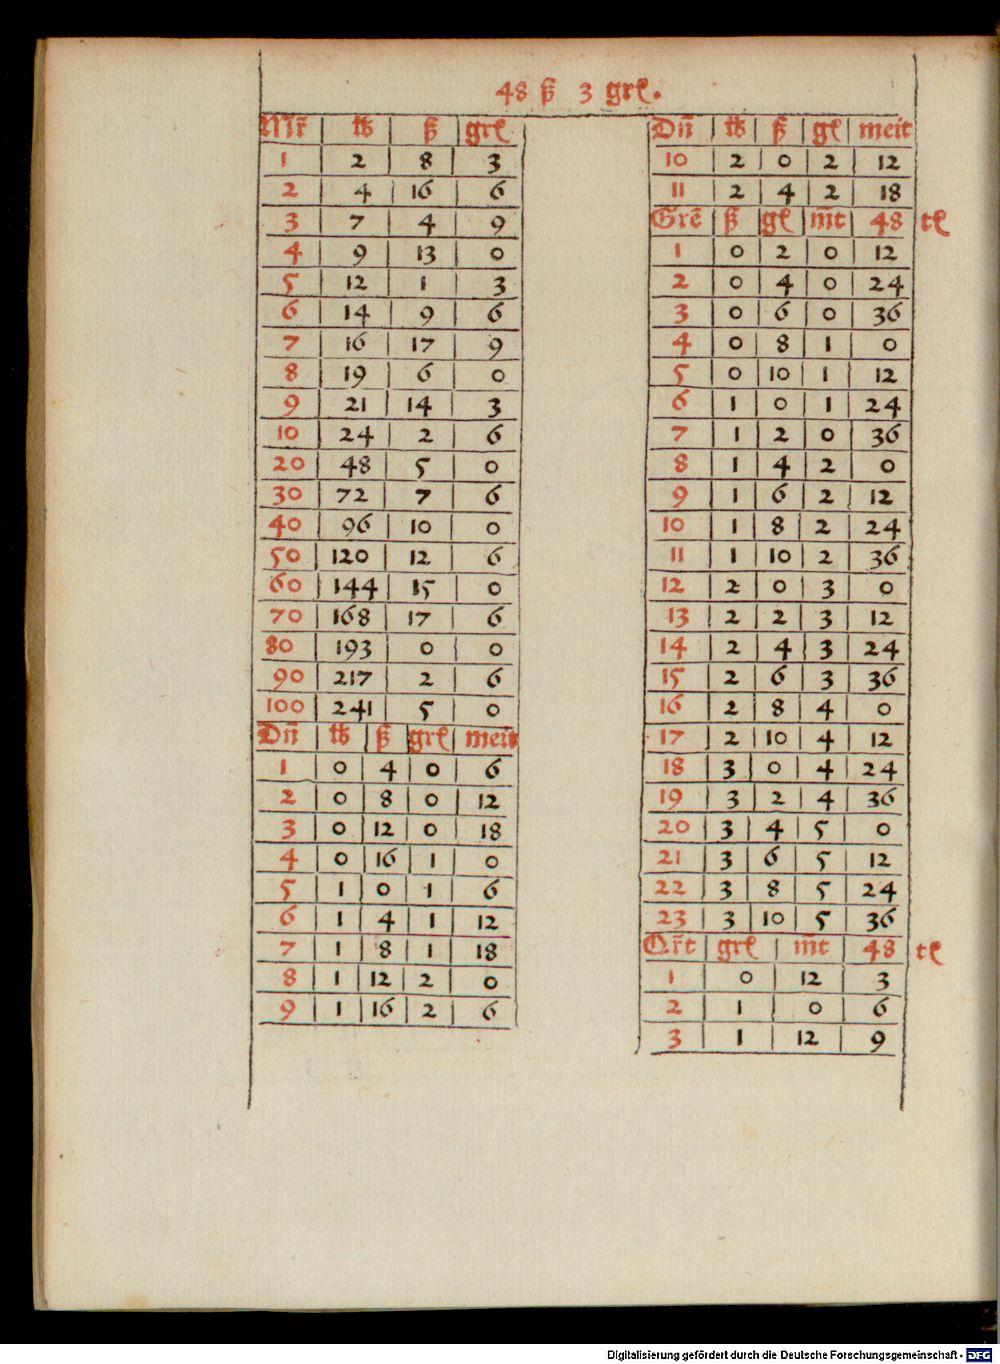 48 ß 3 grꝭ.
Mr̄ | lb | ß | grꝭ
1 | 2 | 8 | 3
2 | 4 | 16 | 6
3 | 7 | 4 | 9
4 | 9 | 13 | 0
5 | 12 | 1 | 3
6 | 14 | 9 | 6
7 | 16 | 17 | 9
8 | 19 | 6 | 0
9 | 21 | 14 | 3
10 | 24 | 2 | 6
20 | 48 | 5 | 0
30 | 72 | 7 | 6
40 | 96 | 10 | 0
50 | 120 | 12 | 6
60 | 144 | 15 | 0
70 | 168 | 17 | 6
80 | 193 | 0 | 0
90 | 217 | 2 | 6
100 | 241 | 5 | 0
Dn̄ | lb | ß | grꝭ | meit
1 | 0 | 4 | 0 | 6
2 | 0 | 8 | 0 | 12
3 | 0 | 12 | 0 | 18
4 | 0 | 16 | 1 | 0
5 | 1 | 0 | 1 | 6
6 | 1 | 4 | 1 | 12
7 | 1 | 8 | 1 | 18
8 | 1 | 12 | 2 | 0
9 | 1 | 16 | 2 | 6
Dn̄ | lb | ß | gꝭ | meit
10 | 2 | 0 | 2 | 12
11 | 2 | 4 | 2 | 18
Grē | ß | gꝭ | m̄t | 48 tꝭ
1 | 0 | 2 | 0 | 12
2 | 0 | 4 | 0 | 24
3 | 0 | 6 | 0 | 36
4 | 0 | 8 | 1 | 0
5 | 0 | 10 | 1 | 12
6 | 1 | 0 | 1 | 24
7 | 1 | 2 | 0 | 36
8 | 1 | 4 | 2 | 0
9 | 1 | 6 | 2 | 12
10 | 1 | 8 | 2 | 24
11 | 1 | 10 | 2 | 36
12 | 2 | 0 | 3 | 0
13 | 2 | 2 | 3 | 12
14 | 2 | 4 | 3 | 24
15 | 2 | 6 | 3 | 36
16 | 2 | 8 | 4 | 0
17 | 2 | 10 | 4 | 12
18 | 3 | 0 | 4 | 24
19 | 3 | 2 | 4 | 36
20 | 3 | 4 | 5 | 0
21 | 3 | 6 | 5 | 12
22 | 3 | 8 | 5 | 24
23 | 3 | 10 | 5 | 36
Or̄t | grꝭ | m̄t | 48 tꝭ
1 | 0 | 12 | 3
2 | 1 | 0 | 6
3 | 1 | 12 | 9
Digitalisierung gefördert durch die Deutsche Forschungsgemeinschaft - DFG